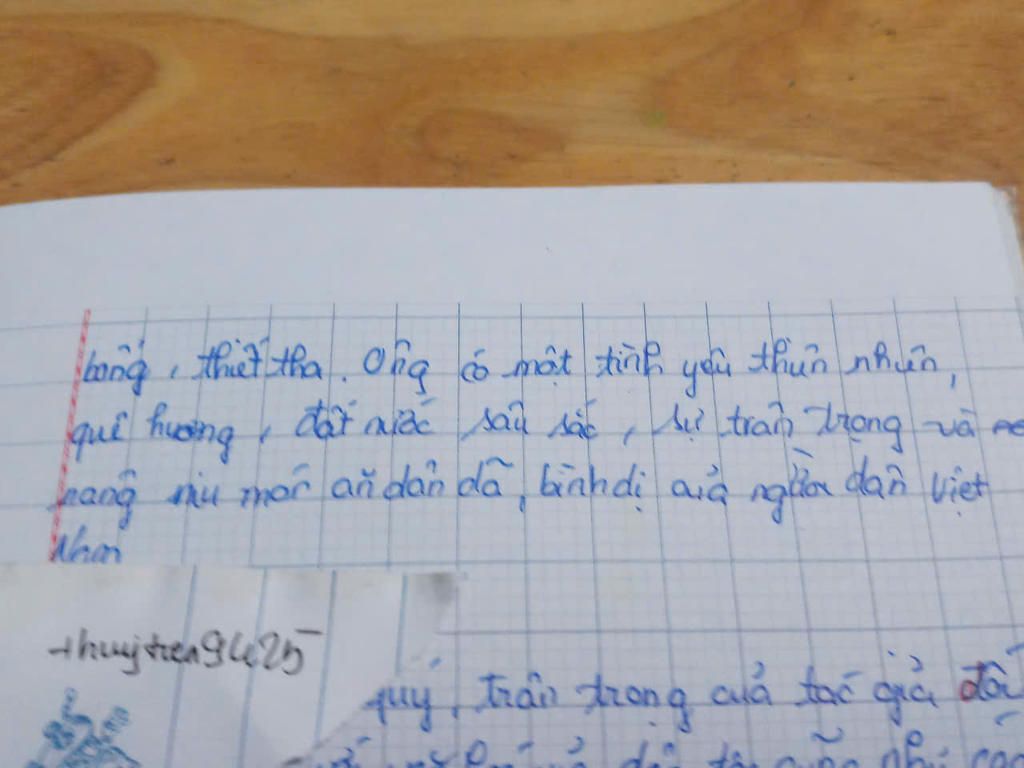 bổng, thiết tha. Ông có một tình yêu thiên nhiên,
quê hương, đất nước sâu sắc, sự trân trọng và
nâng niu món ăn dân dã, bình dị của người dân Việt
Nam
thuytien9425
quý, trân trọng của tác giả đối